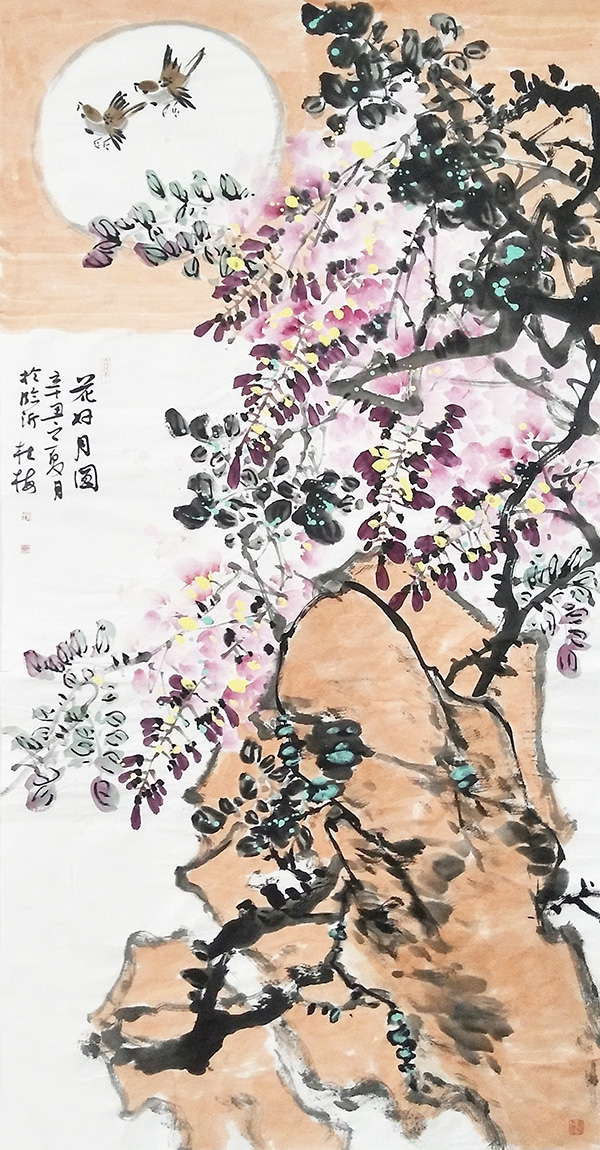 花好月圆
辛丑之夏月
於临沂 桂梅